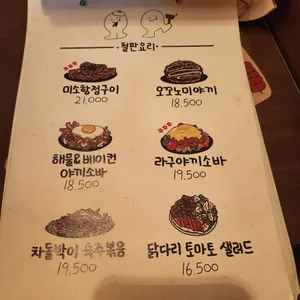 철판요리
미소항정구이
21,000
오꼬노미야끼
18.500
해물&베이컨
야끼소바
18.500
라구야끼소바
19.500
차돌박이 숙주볶음
19.500
닭다리 토마토 샐러드
16.500